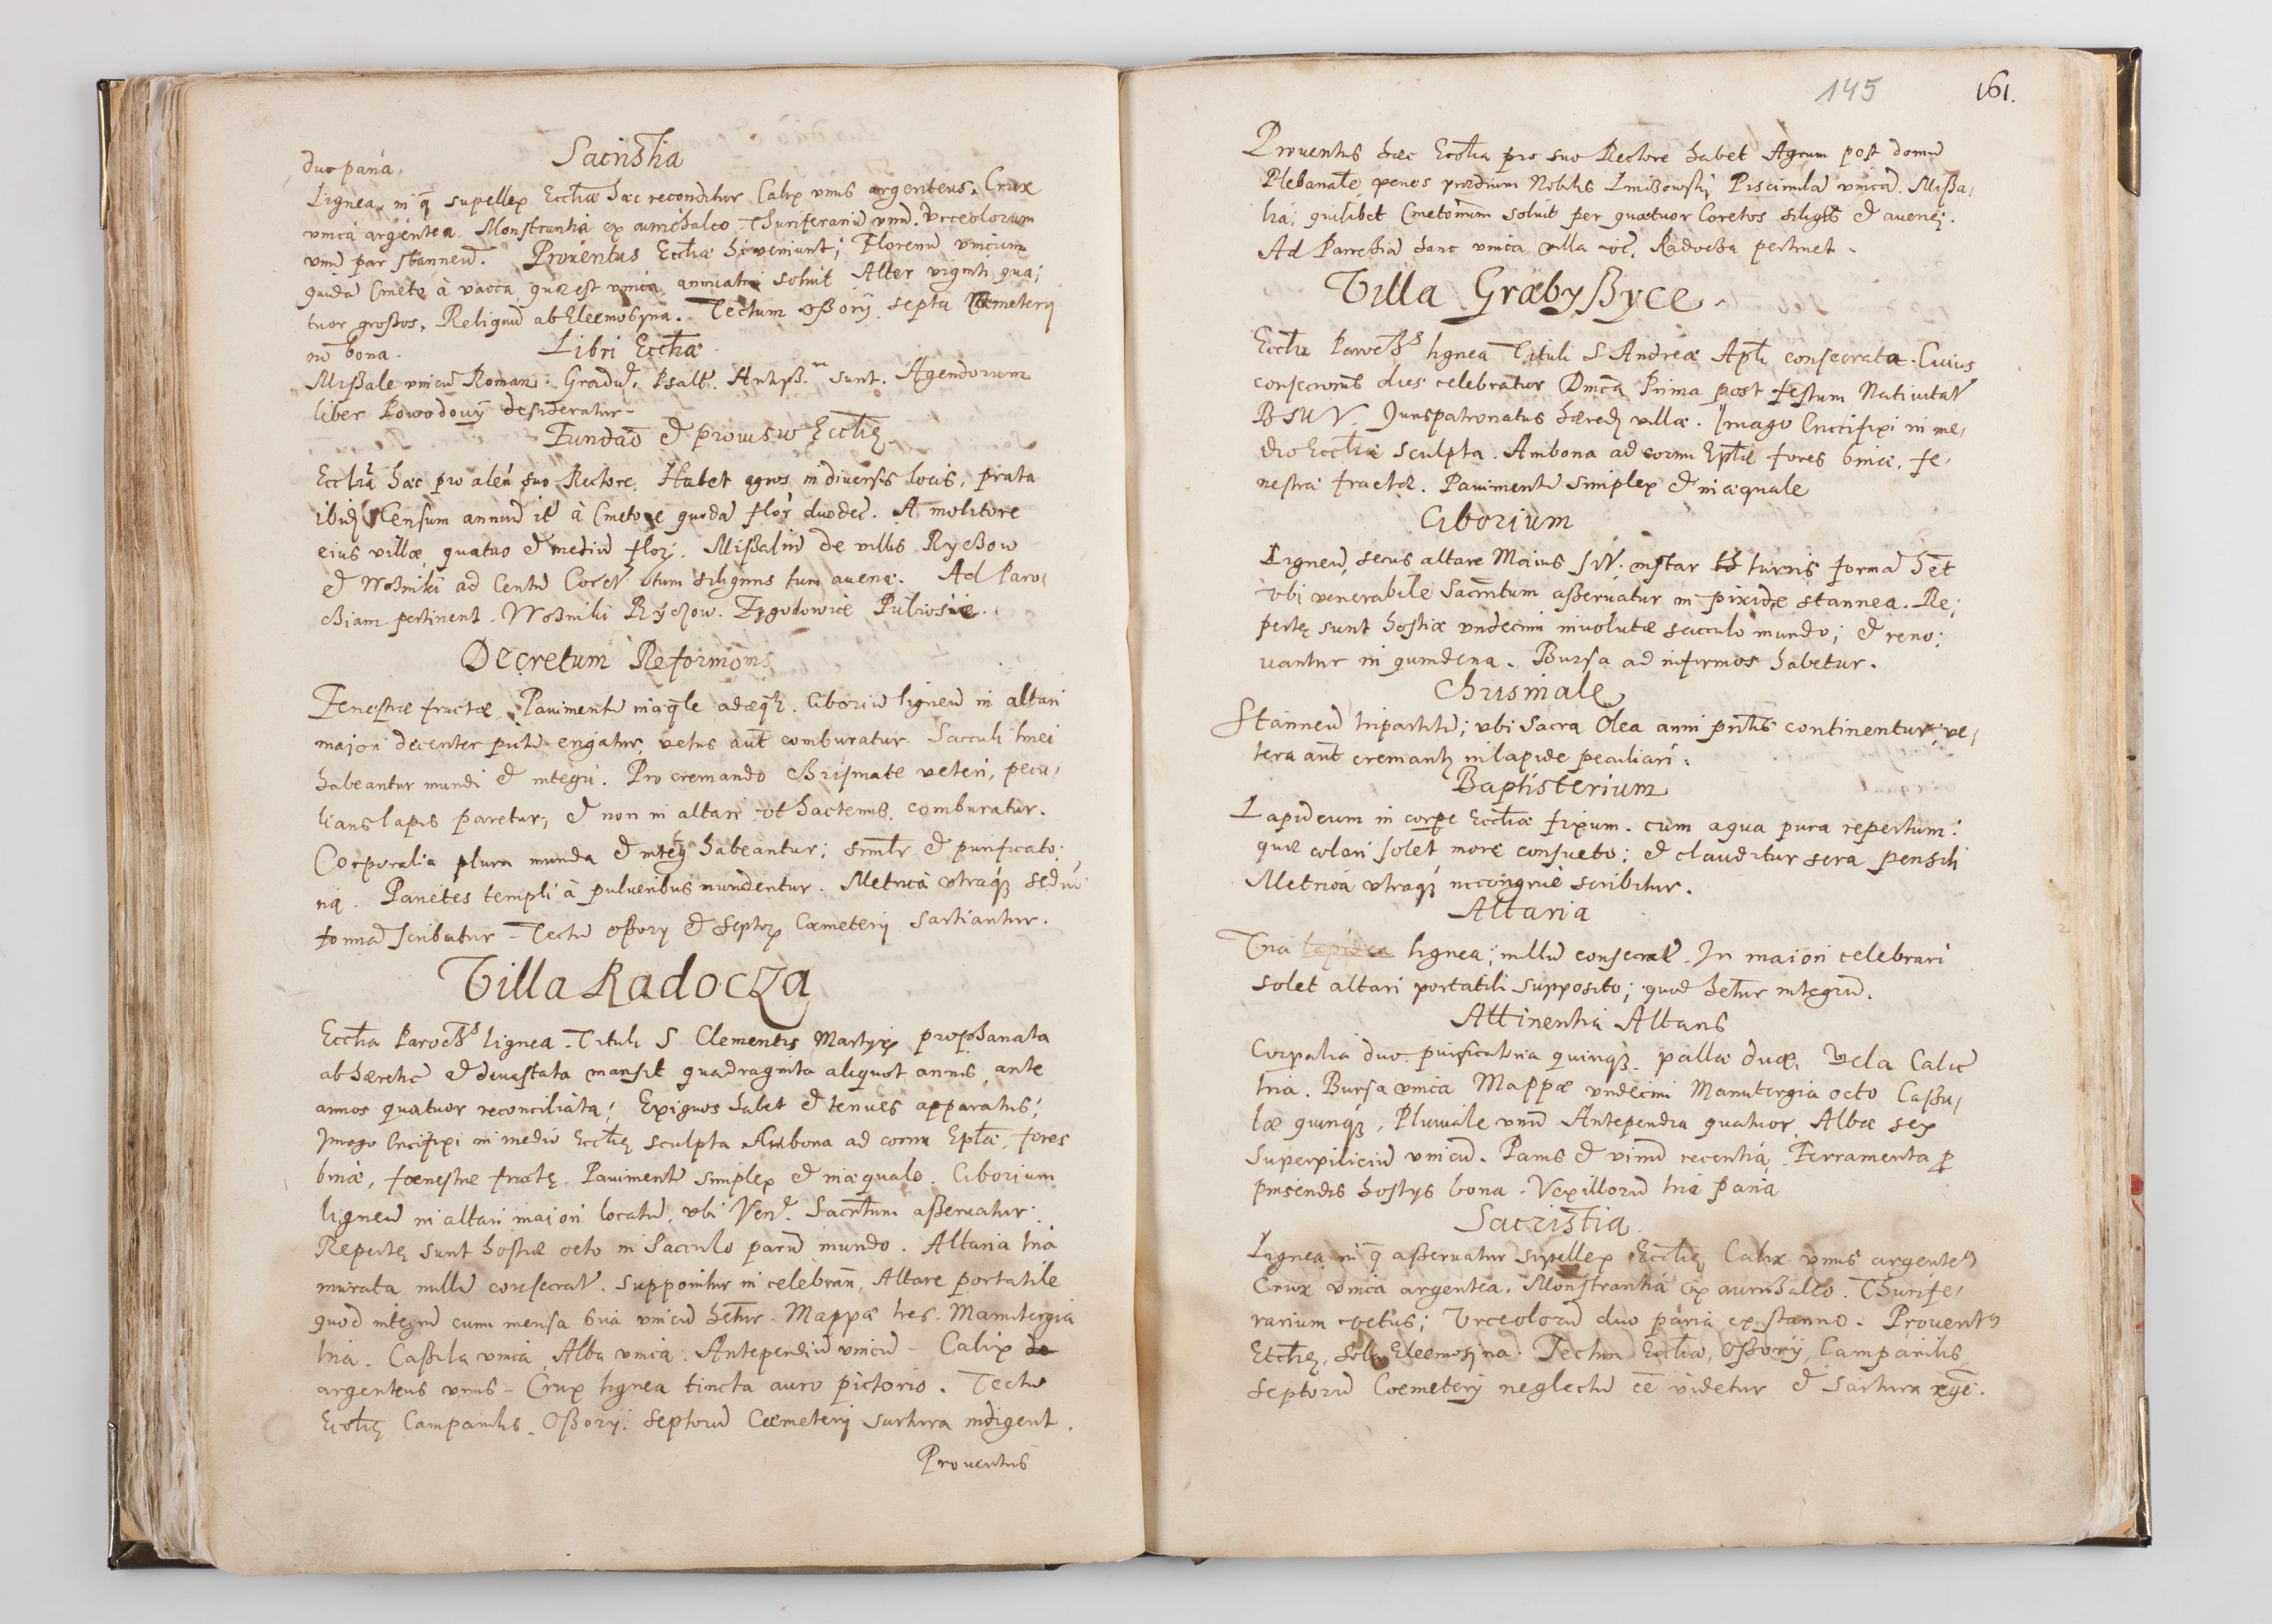 duo paria.
Sacristia
Lignea in q̄ supellex Eccliæ hæc reconditur Calix vnus argenteus. Crux
vnica argentea. Monstrantia ex aurichalco Thuriferariū vnū. Vrceolorum
vnū par stanneū. Prouentus Eccliæ hi veniunt; Florenū vnicum
quidā Cmeto à vacca quæ est vnica annuatim soluit Alter viginti qua;
tuor großos, Reliquū ab Eleemosyna. Tectum oßorij septa Cæmeterij
nō bona.
Libri Eccliæ
Mißale vnicū Roman: Graduū, Psalt. Antiph. sunt. Agendorum
liber Powodouij desideratur
Fundaō et prouisio Eccliȩ
Ecclia hæc pro alen̄ suo Rectore, Habet agros in diuersis locis, prata
ibid. Censum annuū itē à Cmetone quodā flor duodec̄. A molitore
eius villæ, quatuor et mediū flor. Mißaliū de villis Rychow
et Woźniki ad Centū Coret tum siliginis tum auenæ. Ad Paro,
chiam pertinent. Woźniki Rychow. Zygodowice
Decretum Reformōnis
Fenestræ fractæ, Pauimentū inæq̄le adæq̄tr. Ciboriū ligneū in altari
maiori decenter pictū erigatur, vetus aūt comburatur Sacculi linei
habeantur mundi et integri. Pro cremando chrismate veteri, pecu,
liaris lapis paretur, et non in altari vt hactenus comburatur.
Corporalia plura munda et integ̃ habeantur; simlr et purificato:
ria. Parietes templi à pulueribus mundentur. Metrica vtraq; secdū
formā scribatur Tectū oßorij et septor Cæmeterij sartiantur.
Villa Radocza
Ecclia Paroch lignea Tituli S Clementis Martyris prophanata
ab hæretic̄ et deuastata mansit quadraginta aliquot annis, ante
annos quatuor reconciliata; Exiguos habet et tenues apparatus;
Imago Crucifixi in medio Eccliȩ sculpta Ambona ad cornu Eplæ, fores
binæ, fœnestræ fractȩ. Pauimentū simplex et inæquale. Ciborium
ligneū in altari maiori locatū, vbi Ven. Sacrm̄tum aßeruatur;
Repertȩ sunt hostiæ octo in Sacculo parū mundo. Altaria tria
murata nullū consecrat. supponitur in celebran̄, Altare portatile
quod integrū cum mensa sua vnicū hētur. Mappæ tres. Manutergia
tria. Casula vnica, Alba vnica. Antependiū vnicū. Calix de
argenteus vnus. Crux lignea tincta auro pictorio. Tectū
Eccliȩ Campanilis Oßorij. Septorū Cæmeterij sartura indigent.
Prouentus
145 161.
Prouentus hæc Ecclia pro suo Rectore habet Agrum post domū
Plebanale, penes prædium Nobilis Piscinulā vnicā. Mißa,
lia, quilibet Cmetonum soluit per quatuor Coretos siliginis et auenȩ.
Ad Parochiā hanc vnica villa Radocza pertinet
Villa Græbyßyce
Ecclia Paroch lignea Tituli S Andreæ Apli consecrata. Cuius
consecronis dies celebratur Dnica Prima post festum Natiuitat
B S V. Juuspatronatus hæred. villæ. Imago Crucifixi in me,
dio Eccliæ Sculpta. Ambona ad cornu Eplæ fores binæ, fe,
nestræ fractæ. Pauimentū simplex et inæquale
Ciborium
Ligneū, secus altare Maius instar turris formā het
vbi venerabile Sacrm̄tum aßeruatur in pixide stannea. Re;
pertȩ sunt hostiæ vndecim inuolutæ sacculo mundo; et reno:
uantur in quindena. Bursa ad infirmos habetur.
Chrismale
Stanneū tripartitū; vbi Sacra Olea anni pn̄tis continentur; ve,
tera aūt cremantur in lapide peculiari.
Baptisterium
Lapideum in corpe Eccliæ fixum. cum aqua pura repertum:
quæ colari solet more consueto; et clauditur sera pensili
Metrica vtraq; incongruè scribitur.
Altaria
Tria lapidea lignea; nullū consecrat. In maiori celebrari
solet altari portatili supposito; quod hetur integrū.
Attinentia Altaris
Corpalia duo. purificatoria quinq;. pallæ duæ, Vela Calic̄
tria. Bursa vnica Mappæ vndecim Manutergia octo Caßu,
læ quinq;, Pluuiale vnū Antependia quatuor. Albæ sex
Superpiliciū vnicū. Panis et vinū recentia. Ferramenta p
pinsendis hostijs bona. Vexillorū tria paria
Sacristia
Lignea in q̄ aßeruatur supellex Eccliȩ Calix vnus argente9
Crux vnica argentea. Monstrantia ex aurichalco. Thurife,
rarium vetus; Vrceolorū duo paria ex stanno. Prouent9
Eccliȩ, Sola Eleemosina. Tectum Eccliæ, Oßorij, Campanilis
Septorū Cœmeterij neglectū eē videtur et sartura eget.